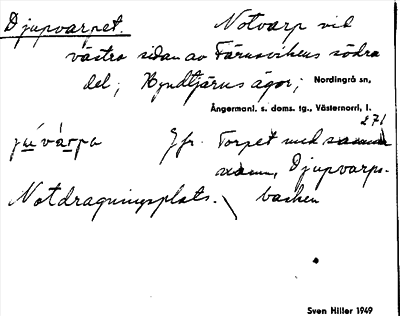 Djupvarpet. Notvarp vid
västra sidan av Färnsvikens södra
del; Byndtjärns ägor; Nordingrå sn,
Ångermanl. s. doms. tg., Västernorrl. l.
271
jú̱vá̱rpa Jfr. Torpet med samma
namn, Djupvarps-
Notdragningsplats. \ backen
Sven Hiller 1949